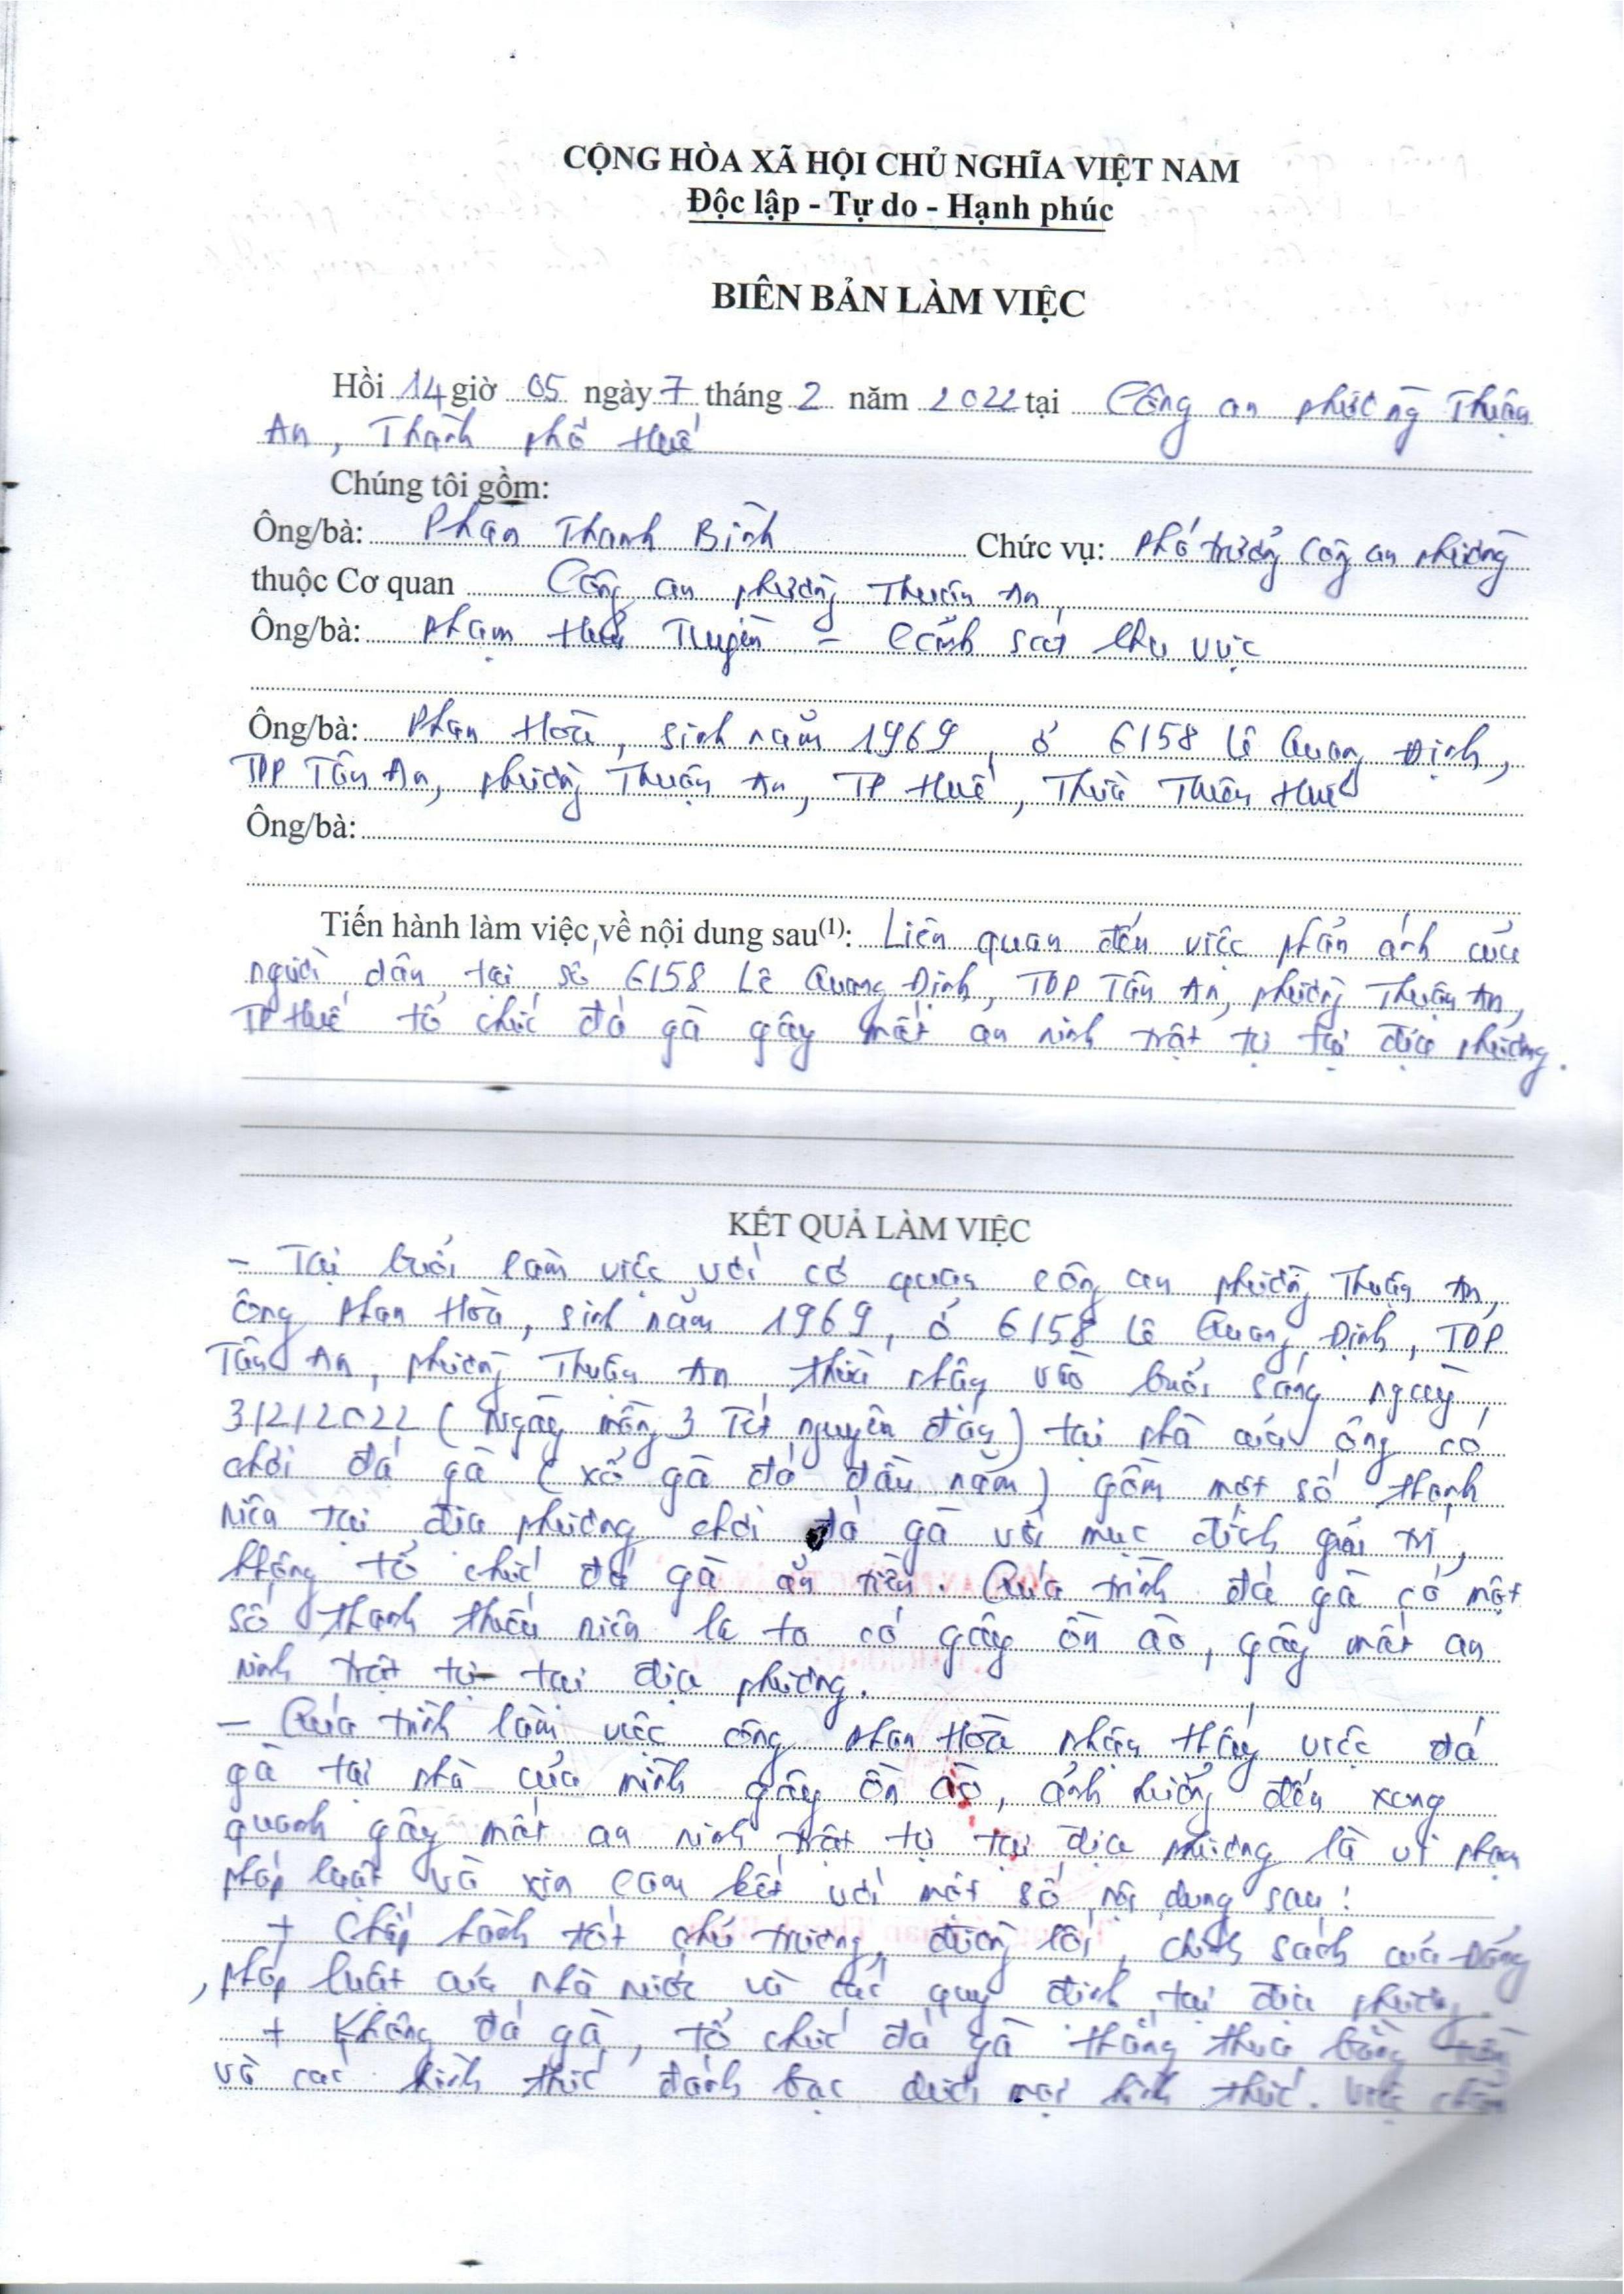 CỘNG HÒA XÃ HỘI CHỦ NGHĨA VIỆT NAM
Độc lập - Tự do - Hạnh phúc
BIÊN BẢN LÀM VIỆC
Hồi 14 giờ 05 ngày 7 tháng 2 năm 2022 tại Công an phường Thuận
An, Thành phố Huế
Chúng tôi gồm:
Ông/bà: Phan Thanh Bình Chức vụ: Phó trưởng Công an phường
thuộc Cơ quan Công an phường Thuận An,
Ông/bà: Phạm Hữu Truyền - Cảnh sát khu vực
Ông/bà: Phan Hòa, sinh năm 1969, ở 6158 Lê Quang Định,
TDP Tân An, phường Thuận An, TP Huế, Thừa Thiên Huế
Ông/bà:
Tiến hành làm việc về nội dung sau(1): Liên quan đến việc phản ánh của
người dân tại số 6158 Lê Quang Định, TDP Tân An, phường Thuận An,
TP Huế tổ chức đá gà gây mất an ninh trật tự tại địa phương.
KẾT QUẢ LÀM VIỆC
- Tại buổi làm việc với cơ quan công an phường Thuận An,
ông Phan Hòa, sinh năm 1969, ở 6158 Lê Quang Định, TDP
Tân An, phường Thuận An thừa nhận vào buổi sáng ngày
3/2/2022 (Ngày mồng 3 Tết nguyên đán) tại nhà của ông có
chơi đá gà (xổ gà đá đầu năm) gồm một số thanh
niên tại địa phương chơi đá gà với mục đích giải trí,
không tổ chức đá gà ăn tiền. Quá trình đá gà có một
số thanh thiếu niên la to có gây ồn ào, gây mất an
ninh trật tự tại địa phương.
- Quá trình làm việc công Phan Hòa nhận thấy việc đá
gà tại nhà của mình gây ồn ào, ảnh hưởng đến xung
quanh gây mất an ninh trật tự tại địa phương là vi phạm
pháp luật và xin cam kết với một số nội dung sau:
+ Chấp hành tốt chủ trương, đường lối, chính sách của Đảng
, pháp luật của nhà nước và các quy định tại địa phương.
+ Không đá gà, tổ chức đá gà thắng thua bằng tiền
và các hình thức đánh bạc dưới mọi hình thức. Việc